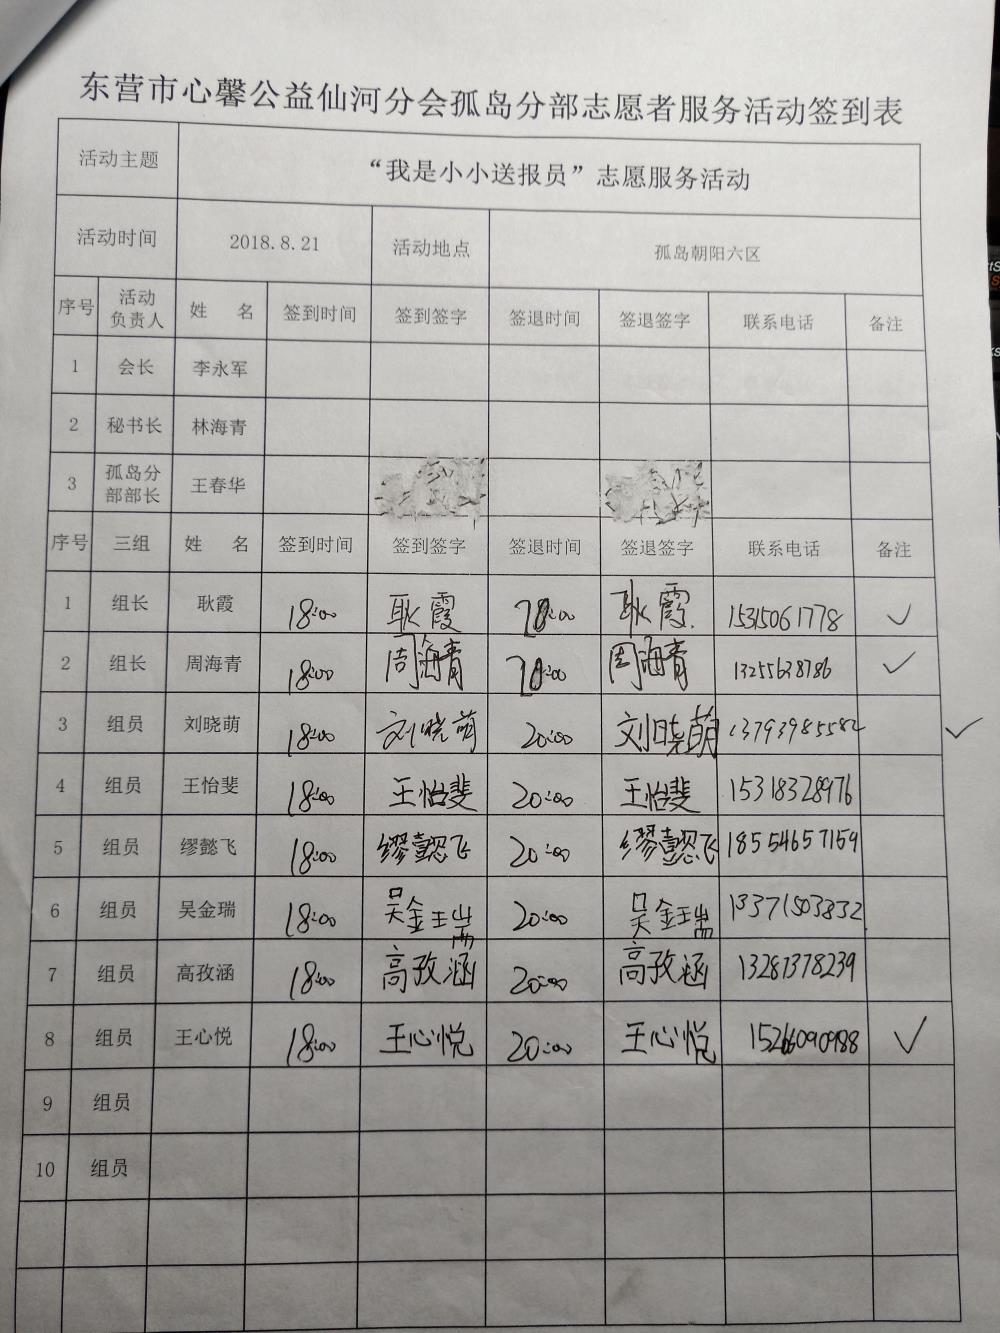 东营市心馨公益仙河分会孤岛分部志愿者服务活动签到表
活动主题 “我是小小送报员”志愿服务活动
活动时间 2018.8.21 活动地点 孤岛朝阳六区
序号 活动负责人 姓 名 签到时间 签到签字 签退时间 签退签字 联系电话 备注
1 会长 李永军
2 秘书长 林海青
3 孤岛分部部长 王春华
序号 三组 姓 名 签到时间 签到签字 签退时间 签退签字 联系电话 备注
1 组长 耿霞 18:00 耿霞 20:00 耿霞. 15315061778 ✓
2 组长 周海青 18:00 周海青 20:00 周海青 13255638786 ✓
3 组员 刘晓萌 18:00 刘晓萌 20:00 刘晓萌 13793985582 ✓
4 组员 王怡斐 18:00 王怡斐 20:00 王怡斐 15318328976
5 组员 缪懿飞 18:00 缪懿飞 20:00 缪懿飞 18554657159
6 组员 吴金瑞 18:00 吴金瑞 20:00 吴金瑞 13371503832
7 组员 高孜涵 18:00 高孜涵 20:00 高孜涵 13281378239
8 组员 王心悦 18:00 王心悦 20:00 王心悦 ✓
9 组员
10 组员